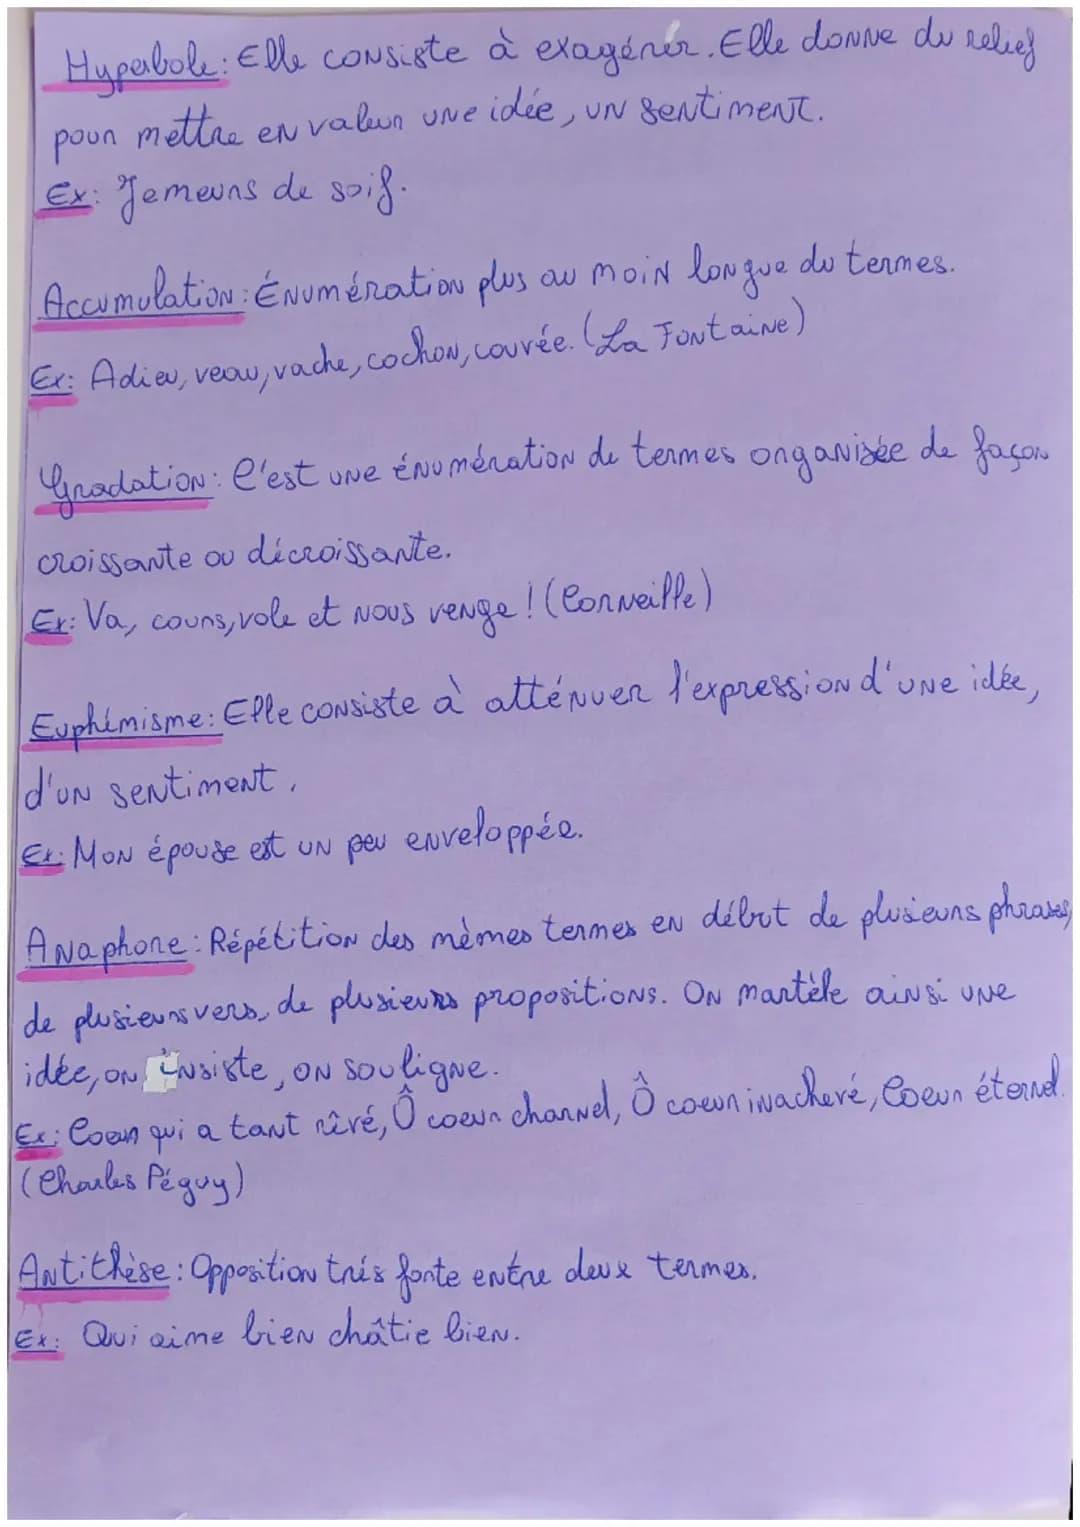 Hyperbole: Elle consiste à exagérer. Elle donne du relief
pour mettre en valeur une idée, un sentiment.
Ex: Je meurs de soif.
Accumulation: Énumération plus au moin longue du termes.
Ex: Adieu, veau, vache, cochon, couvée. (La Fontaine)
Gradation: C'est une énumération de termes organisée de façon
croissante ou décroissante.
Ex: Va, cours, vole et nous venge! (Corneille)
Euphémisme: Elle consiste à atténuer l'expression d'une idée,
d'un sentiment.
Ex: Mon épouse est un peu enveloppée.
Anaphore: Répétition des mêmes termes en début de plusieurs phrases,
de plusieurs vers, de plusieurs propositions. On martèle ainsi une
idée, on insiste, on souligne.
Ex: Coeur qui a tant rêvé, Ô coeur charnel, Ô coeur inachevé, Coeur éternel.
(Charles Péguy)
Antithèse: Opposition très forte entre deux termes.
Ex: Qui aime bien châtie bien.